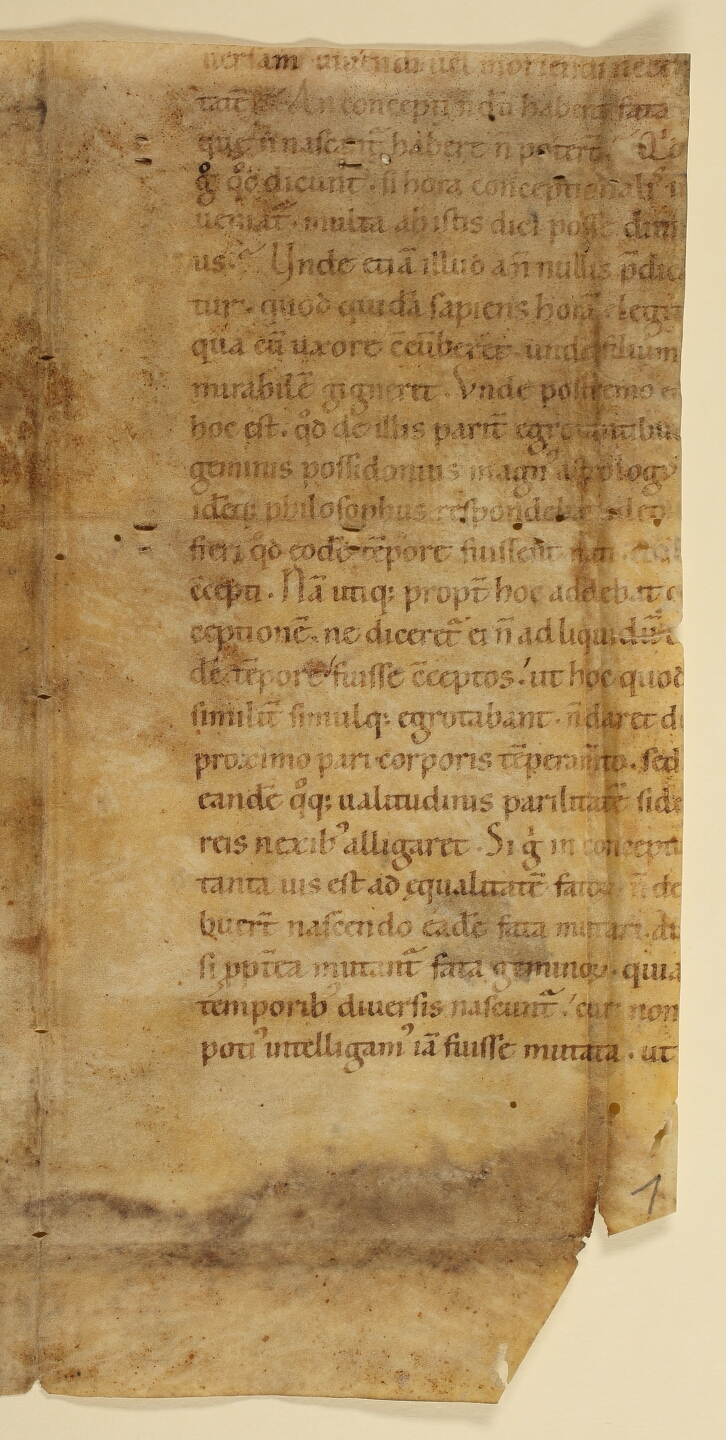 uersam uiuendi uel moriendi nece
tatē. An concepti n̄ dū habent fata
quę n̄ nascant᷑ habere n̄ poterī.
g̊ qd̊ dicunt. si hora conceptionalis in
ueniat᷑. multa ab istis dici posse diuini
us. Unde etiā illud a n̄ nullis p̄dica
tur. quod quidā sapiens horā elegit
qua cū uxore c̄cūberet. unde filium
mirabilē gigneret. Vnde postremo e
hoc est. qd̄ de illis parit̄ egrotantibus
geminis possidonius magn᾿ astrolog᾿
idēq; philosophus respondebat ideo
fieri qd̄ eodē tēpore fuissent nati. eodē
c̄cepti. Nā utiq; propt̄ hoc addebat c
ceptionē. ne diceret᷑ ei n̄ ad liquidū
dē tēpore fuisse c̄ceptos. ut hoc quod
similit̄ simulq; egrotabant. n̄ daret de
proximo pari corporis tēperamto. sed
eandē qq; ualitudinis parilitatē side
reis nexib᾿ alligaret. Si g̊ in concepti
tanta uis est ad ęqualitatē fatoꝝ. n̄ de
buer̄t nascendo eadē fata mutari. aut
si ꝓpt̄ea mutant᷑ fata geminoꝝ. quia
temporib᾿ diuersis nascunt᷑. cur non
poti᾿ intelligam᾿ iā fuisse mutata. ut
1